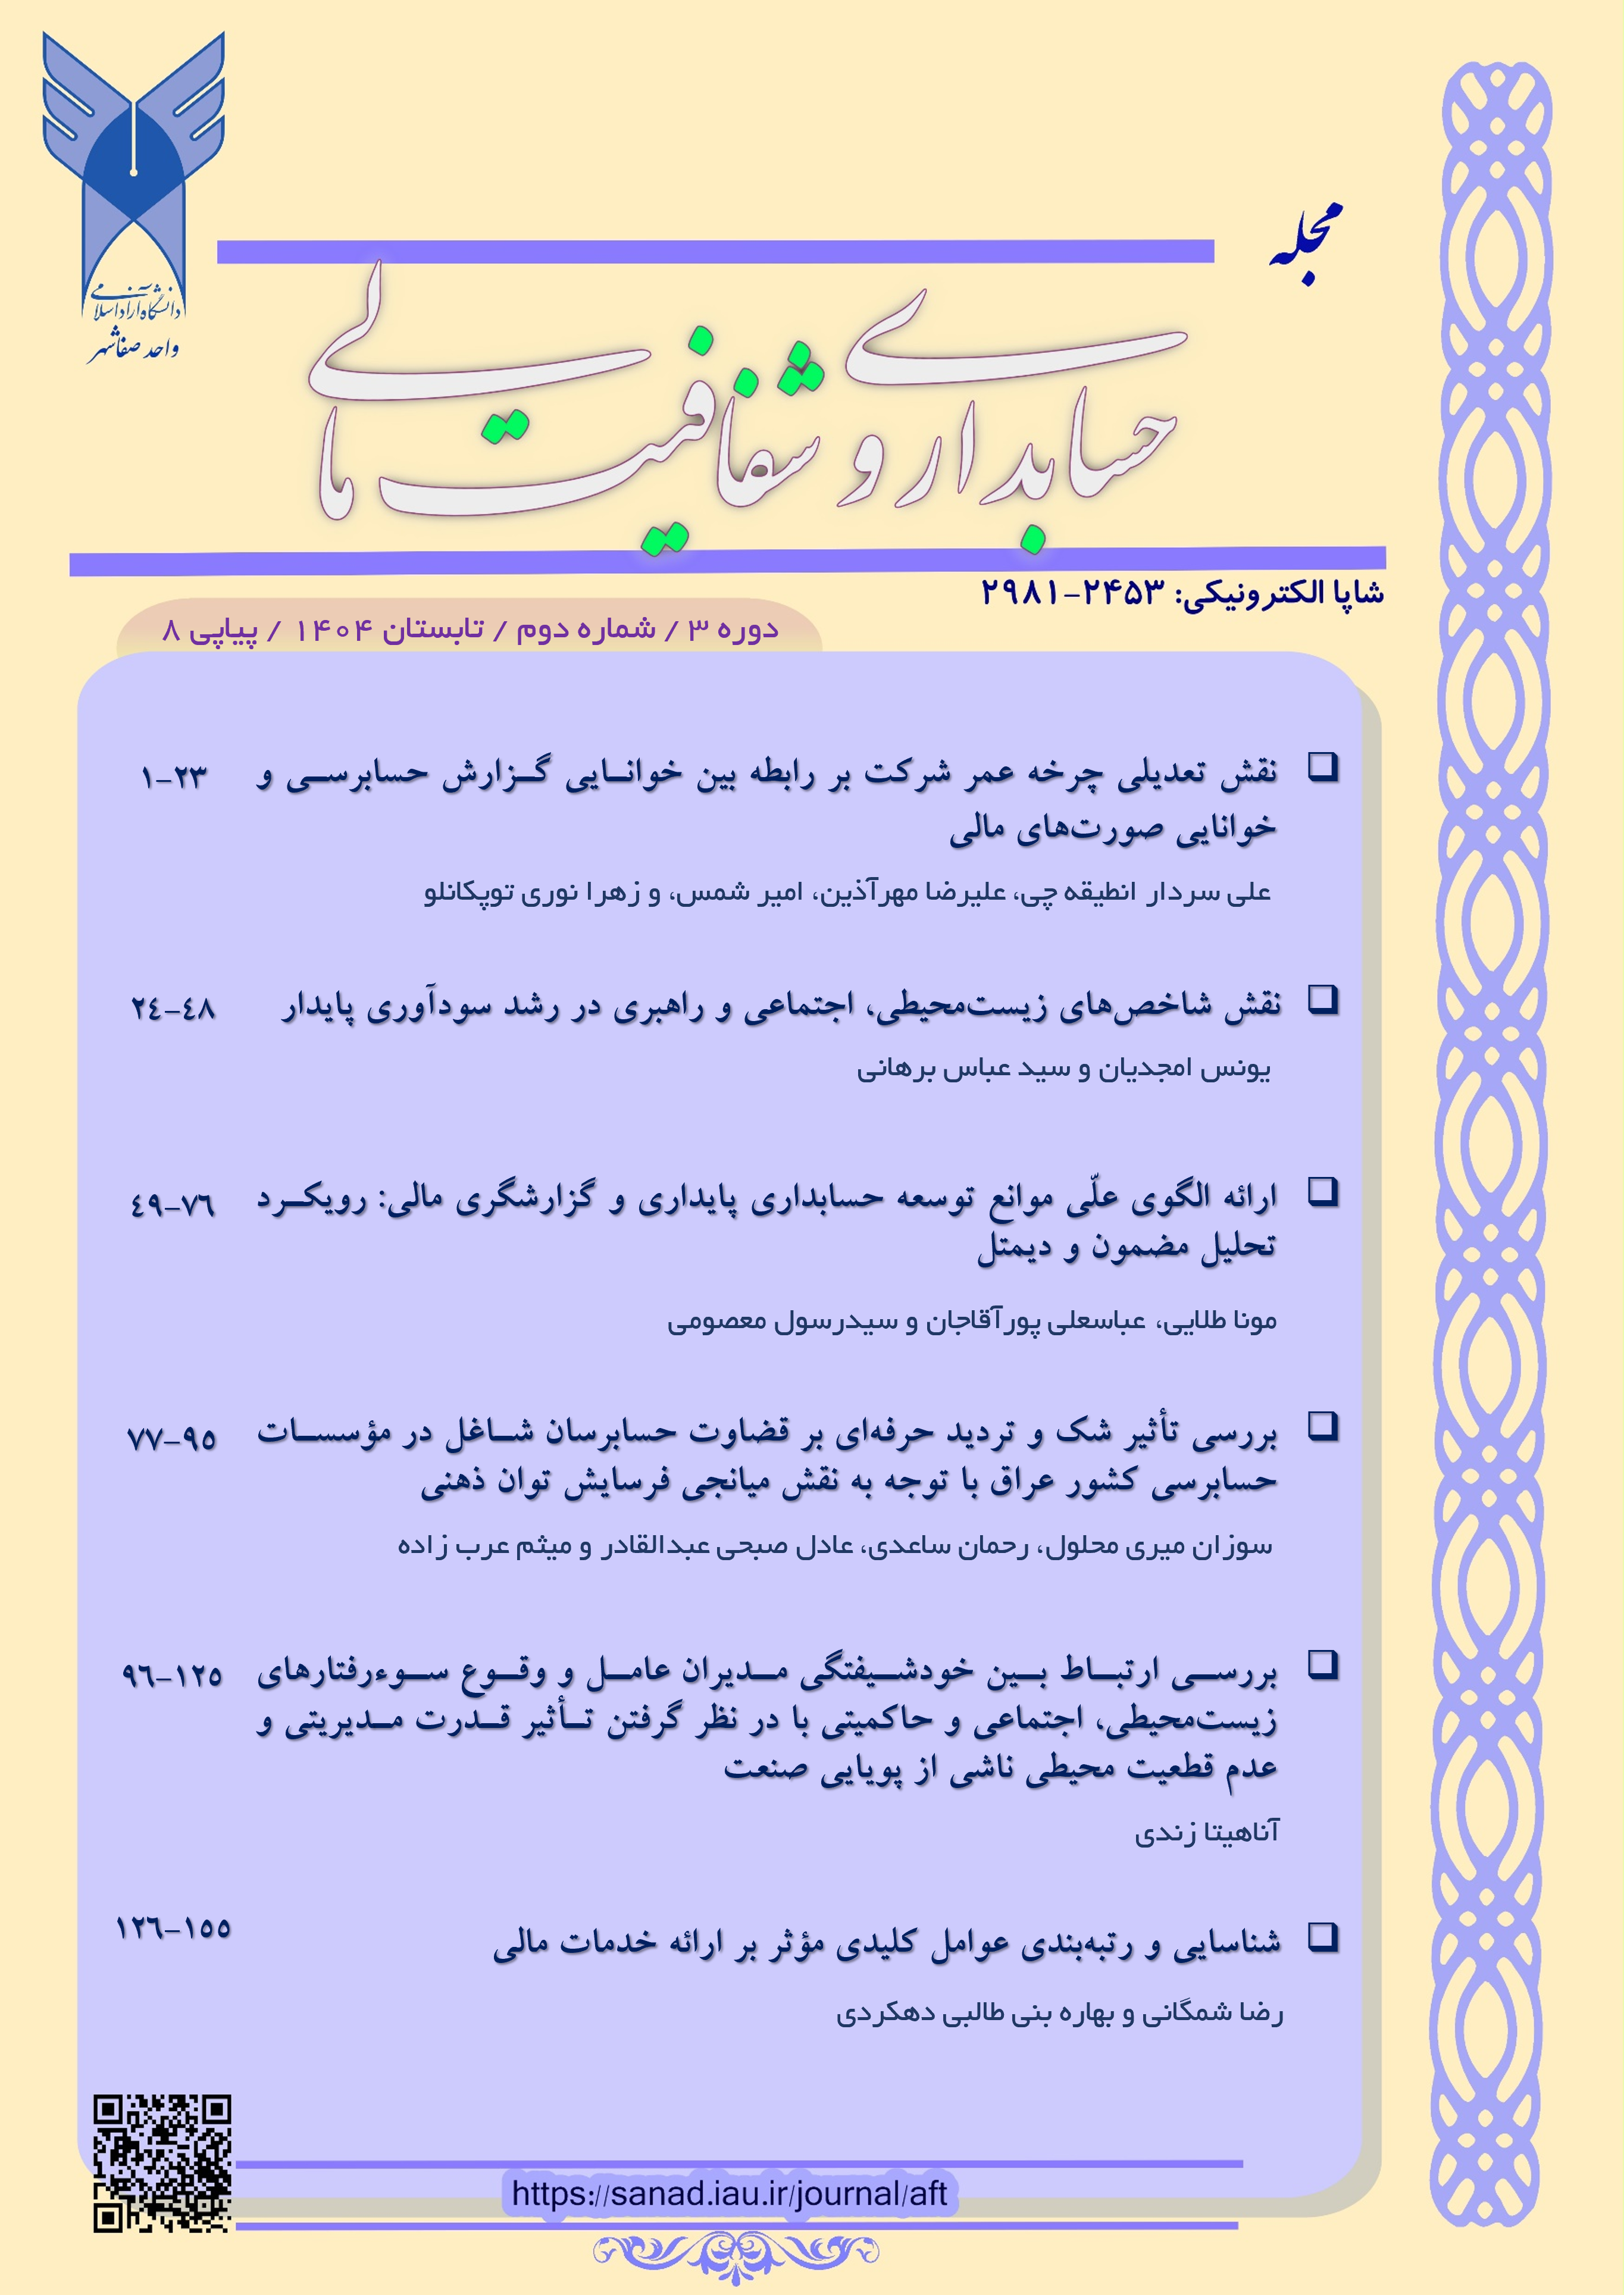 دانشگاه آزاد اسلامی
واحد صفاشهر
مجله
حسابداری و شفافیت مالی
شاپا الکترونیکی: ۲۴۵۳-۲۹۸۱
دوره ۳ / شماره دوم / تابستان ۱۴۰۴ / پیاپی ۸
نقش تعدیلی چرخه عمر شرکت بر رابطه بین خوانایی گزارش حسابرسی و ۱-۲۳
خوانایی صورت‌های مالی
علی سردار انطیقه چی، علیرضا مهرآذین، امیر شمس، و زهرا نوری توپکانلو
نقش شاخص‌های زیست‌محیطی، اجتماعی و راهبری در رشد سودآوری پایدار ٢٤-٤٨
یونس امجدیان و سید عباس برهانی
ارائه الگوی علّی موانع توسعه حسابداری پایداری و گزارشگری مالی: رویکرد ٤٩-٧٦
تحلیل مضمون و دیمتل
مونا طلایی، عباسعلی پورآقاجان و سیدرسول معصومی
بررسی تأثیر شک و تردید حرفه‌ای بر قضاوت حسابرسان شاغل در مؤسسات ٧٧-٩٥
حسابرسی کشور عراق با توجه به نقش میانجی فرسایش توان ذهنی
سوزان میری محلول، رحمان ساعدی، عادل صبحی عبدالقادر و میثم عرب زاده
بررسی ارتباط بین خودشیفتگی مدیران عامل و وقوع سوءرفتارهای ٩٦-١٢٥
زیست‌محیطی، اجتماعی و حاکمیتی با در نظر گرفتن تأثیر قدرت مدیریتی و
عدم قطعیت محیطی ناشی از پویایی صنعت
آناهیتا زندی
شناسایی و رتبه‌بندی عوامل کلیدی مؤثر بر ارائه خدمات مالی ١٢٦-١٥٥
رضا شمگانی و بهاره بنی طالبی دهکردی
https://sanad.iau.ir/journal/aft